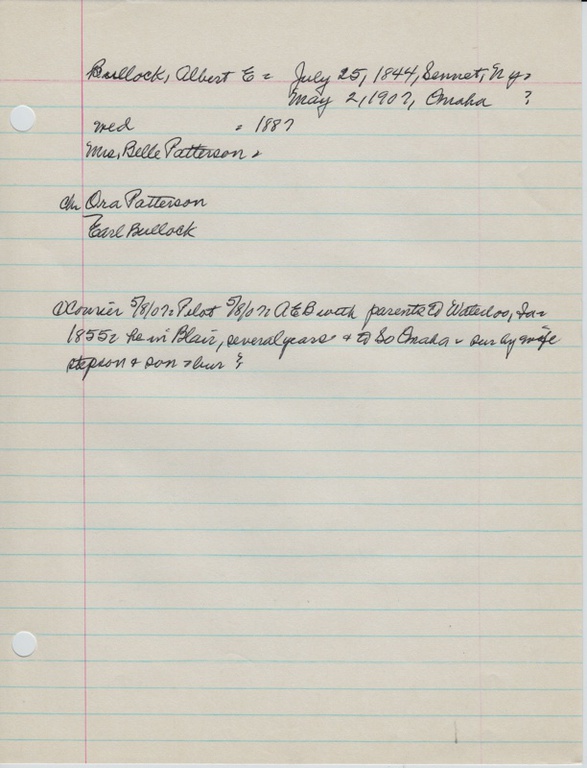 Bullock, Albert E = July 25, 1844, Sennet, Ny =
May 2, 1907, Omaha ?
wed = 1887
Mrs, Belle Patterson =
ch Ora Patterson
Earl Bullock
Courier 5/8/07 = Pilot 5/8/07 = AEB with parents to Waterloo, Ia =
1855 = he in Blair, several years = & to So Omaha = sur by wife
stepson & son = bur ?